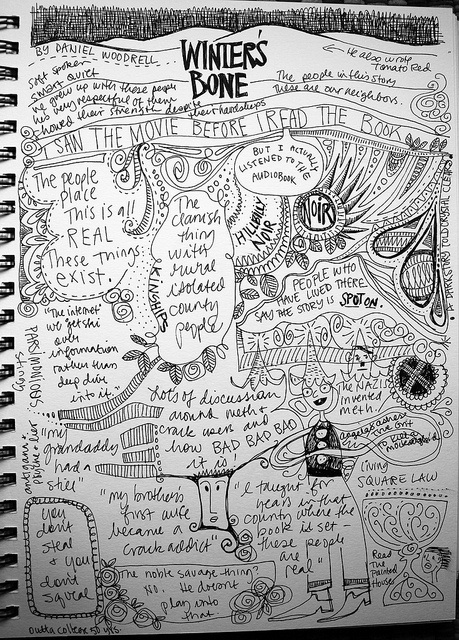 WINTER'S
BONE
BY DANIEL WOODRELL
He also wrote
Tomato Red
Soft spoken
smart quiet
He grew up with these people
he's being respectful of them
showed their strengths despite
their hardships
The people in this story
These are our neighbors.
I SAW THE MOVIE BEFORE I READ THE BOOK
BUT I ACTUALLY
LISTENED TO THE
AUDIOBOOK
The people
place
This is all
REAL
These things
exist.
The
clannish
thing
with
rural
isolated
county
people
KINSHIPS
HILLBILLY
NOIR
NOIR
A DARK STORY TOLD CRYSTAL CLEAR
PEOPLE WHO
HAVE LIVED THERE
SAY THE STORY IS SPOT ON.
"The internet
we get
information
rather than
deep dive
into it."
Lots of discussion
around meth &
crack users and
how BAD BAD BAD
it is!
THE NAZIS
invented
meth.
"my
grandaddy
had a
still"
antigone &
"my brother's
first wife
became a
crack addict"
"I taught for
years in that
country where the
book is set -
these people
are
real"
living
SQUARE LAW
you
don't
steal
& you
don't
squeal
The noble savage thing?
No. He doesn't
play into
that.
Read
The
painted
Houses